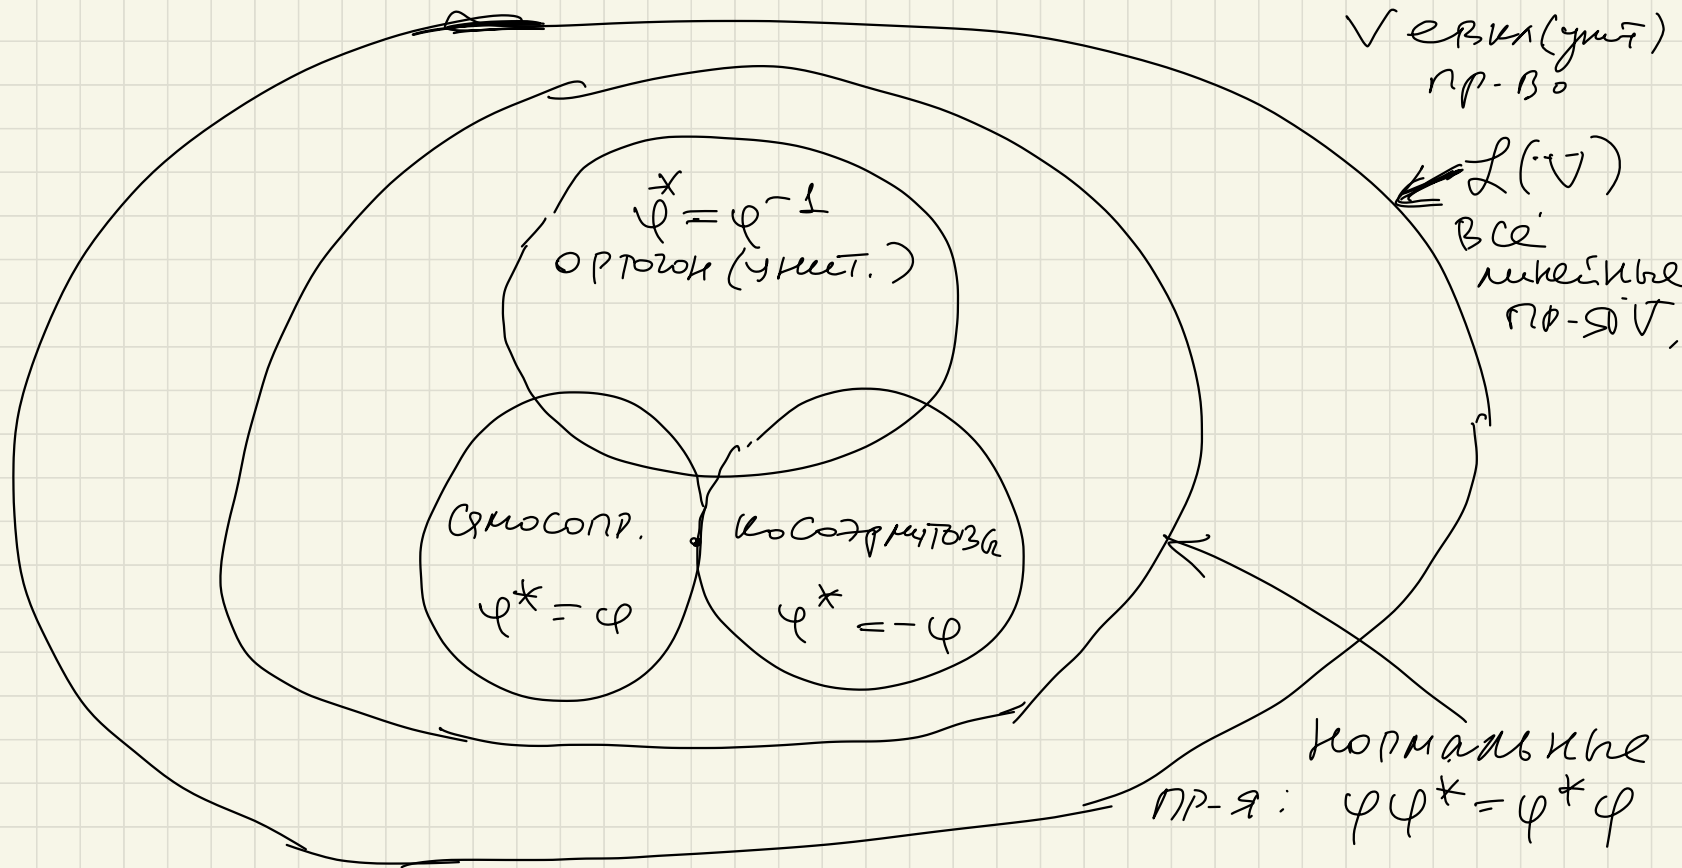 V евкл(унит)
пр-во
L(V)
все
линейные
пр-я V,
φ* = φ⁻¹
ортогон(унит.)
самосопр.
φ* = φ
косоэрмитовы
φ* = -φ
нормальные
пр-я: φφ* = φ*φ